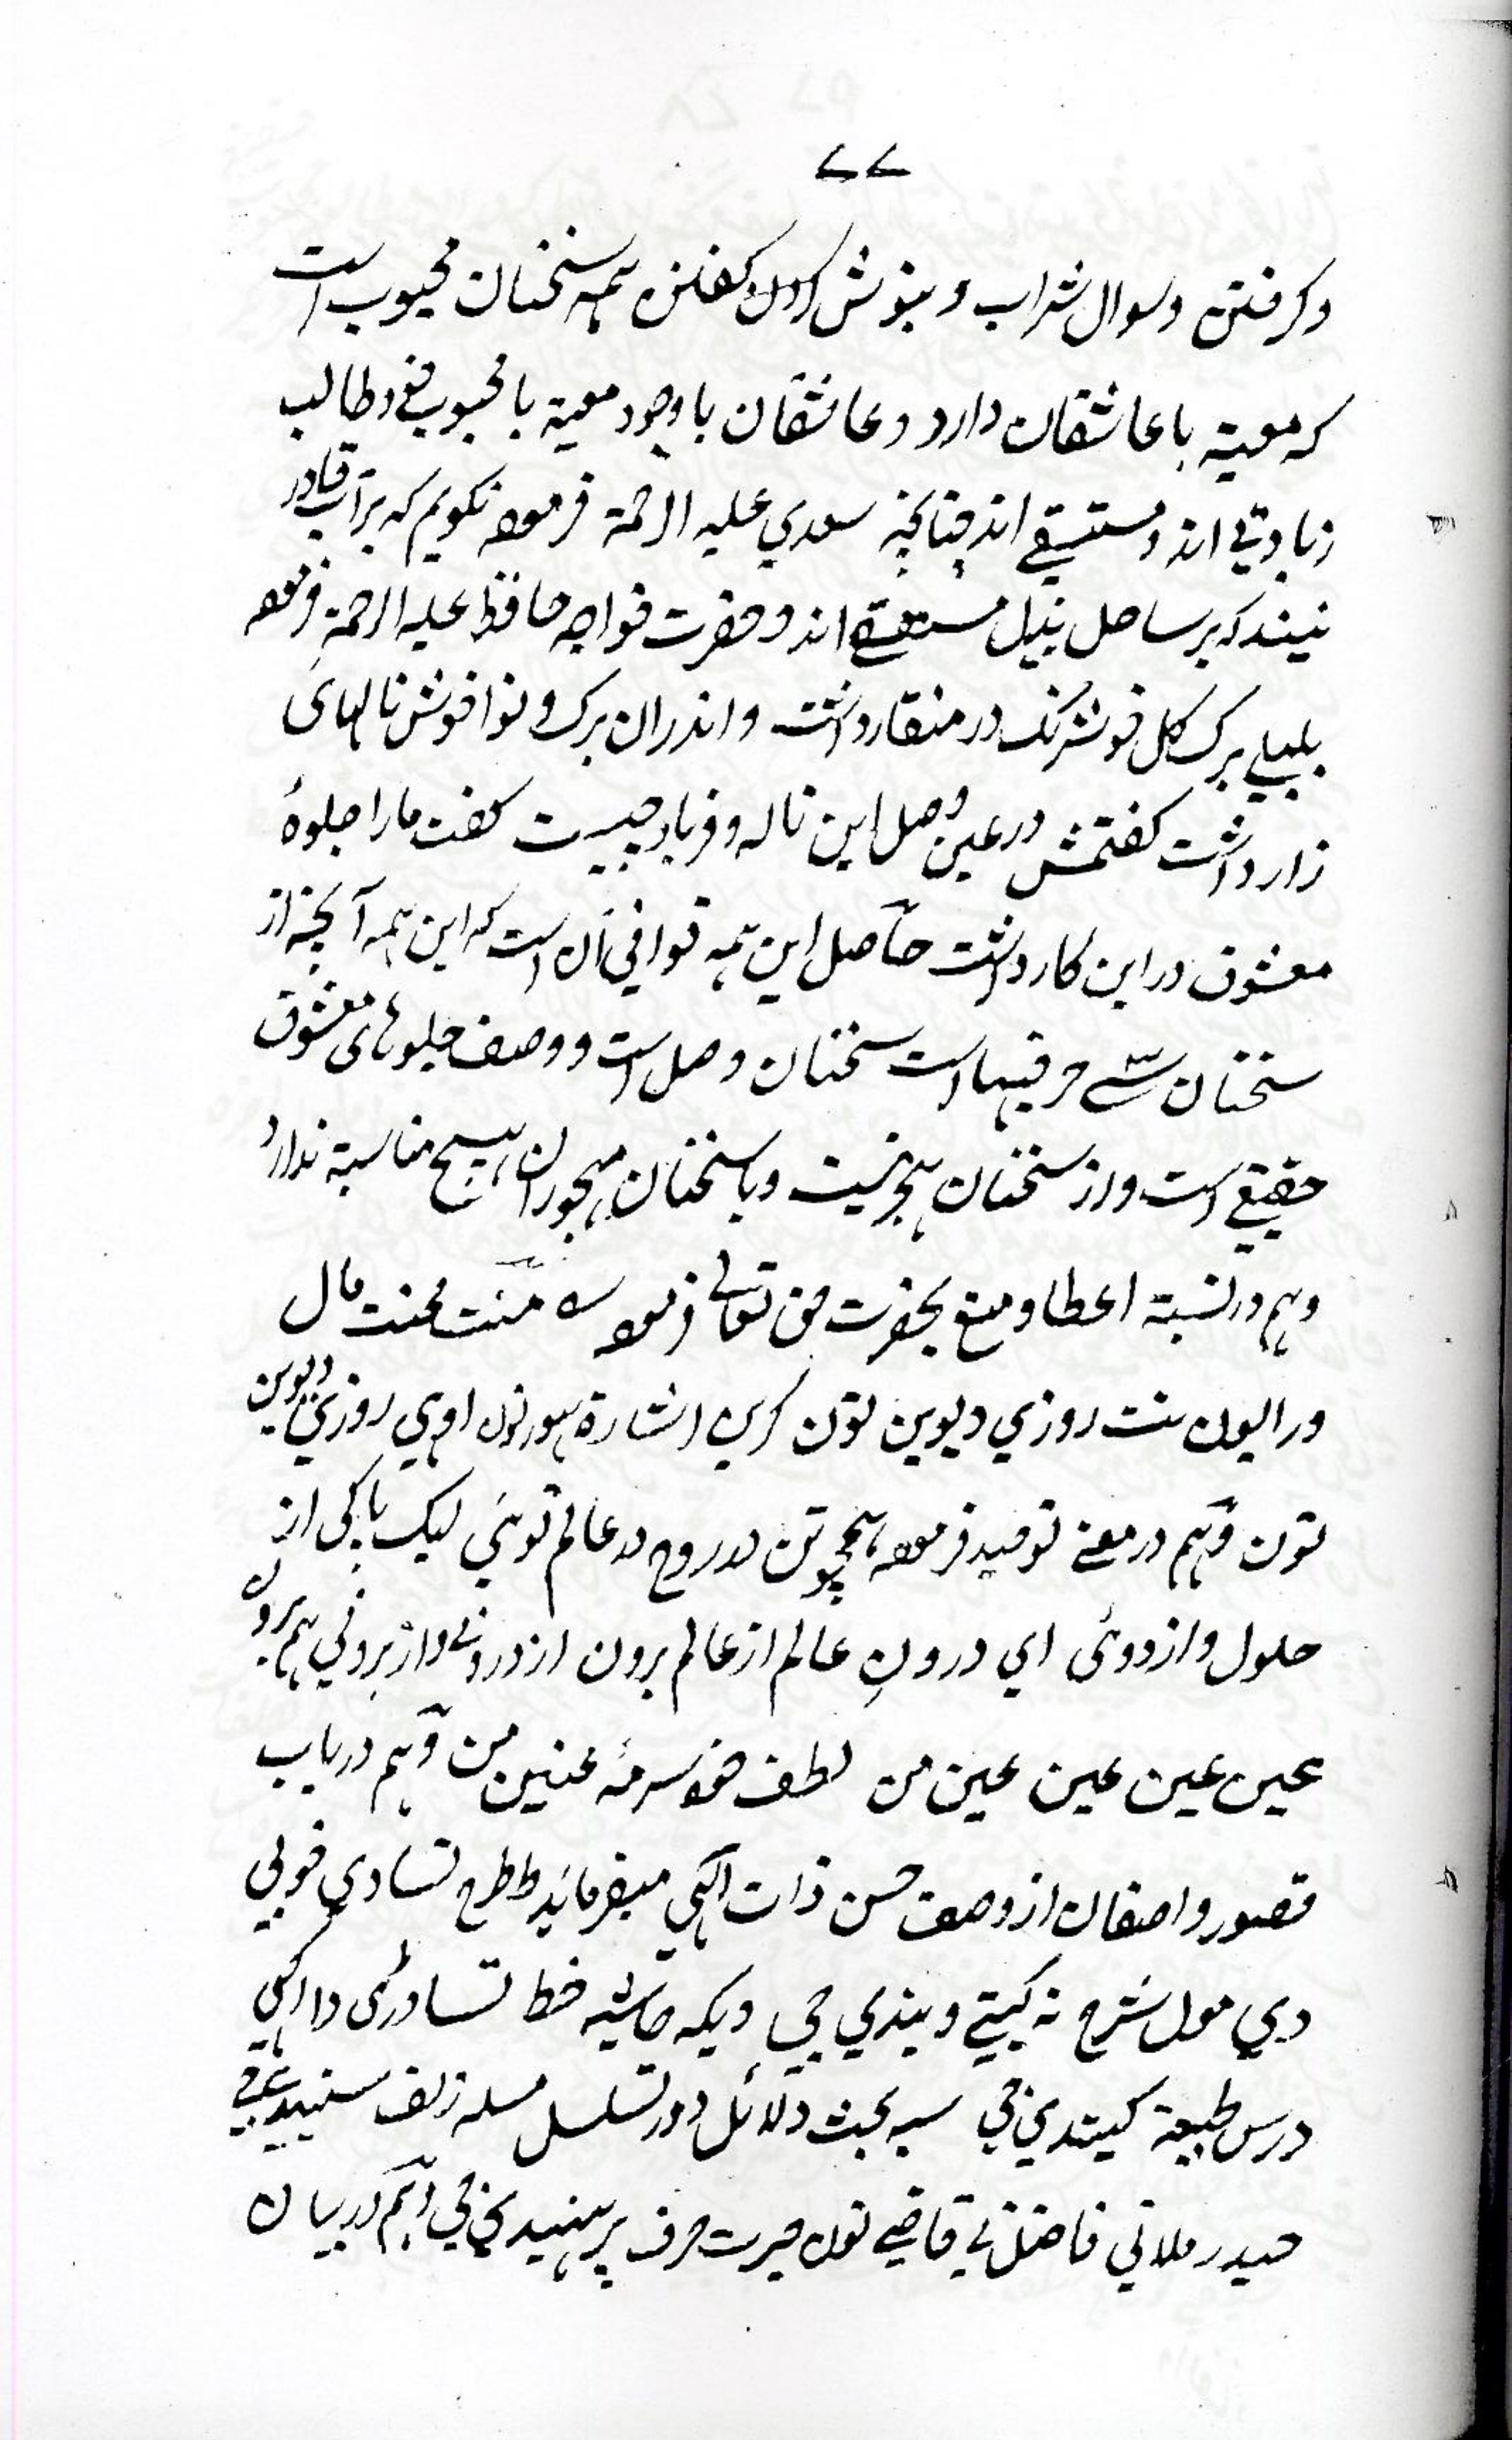 ۷۷
وکرفتن وسوال شراب و بنوش کردن کفتن همه سخنان محبوب است
که معیة با عاشقان دارد و عاشقان با وجود معیة با محبوب و طالب
زیادتی اند و مستسقی اند چنانچه سعدي علیه الرحمة فرموده نکویم که بر آب قادر
نیند که بر ساحل نیل مستسقی اند و حضرت خواجه حافظ علیه الرحمة فرموده
بلبلی برک کل خوشرنک در منقار داشت و اندران برک و نوا خوش نالهای
زار داشت کفتمش در عین وصل این ناله و فریاد چیست کفت ما را جلوهٔ
معشوق در این کار داشت حاصل این همه قوافی آن است که این همه آنچه از
سخنان سی حرفیها است سخنان وصل است و وصف جلوهای معشوق
حقیقی است و از سخنان هجر نیست و با سخنان مهجوران هیچ مناسبة ندارد
وهم در نسبة اعطا و منع بحضرت حق تعالی فرموده منت محنت مال
ورالیون نت روزي دیوین تون کرین اشارة هورنون اوهي روزي دیوین
تون وهم در معنی توحید فرموده همچو تن در روح در عالم توئي لیک پاکی از
حلول و از دوئی اي درونِ عالم از عالم برون از درونی و از برونی هم برون
عین عین عین عین من لطف خود سرمهٔ عینین من وهم در باب
قصور واصفان از وصف حسن ذات الهي میفرماید طرح تساوي خوبي
دي مول شرح نه کیتي ویندي جي ویکه حاشیه خط تساوری دا الهي
درس طبیعة کیتدي جي سبه بحث دلائل دور تسلسل مسله زلف سنیدي
حیدر ملاني فاضل ني قاضي نون حیرت حرف پرهیندي جي وهم در بیان